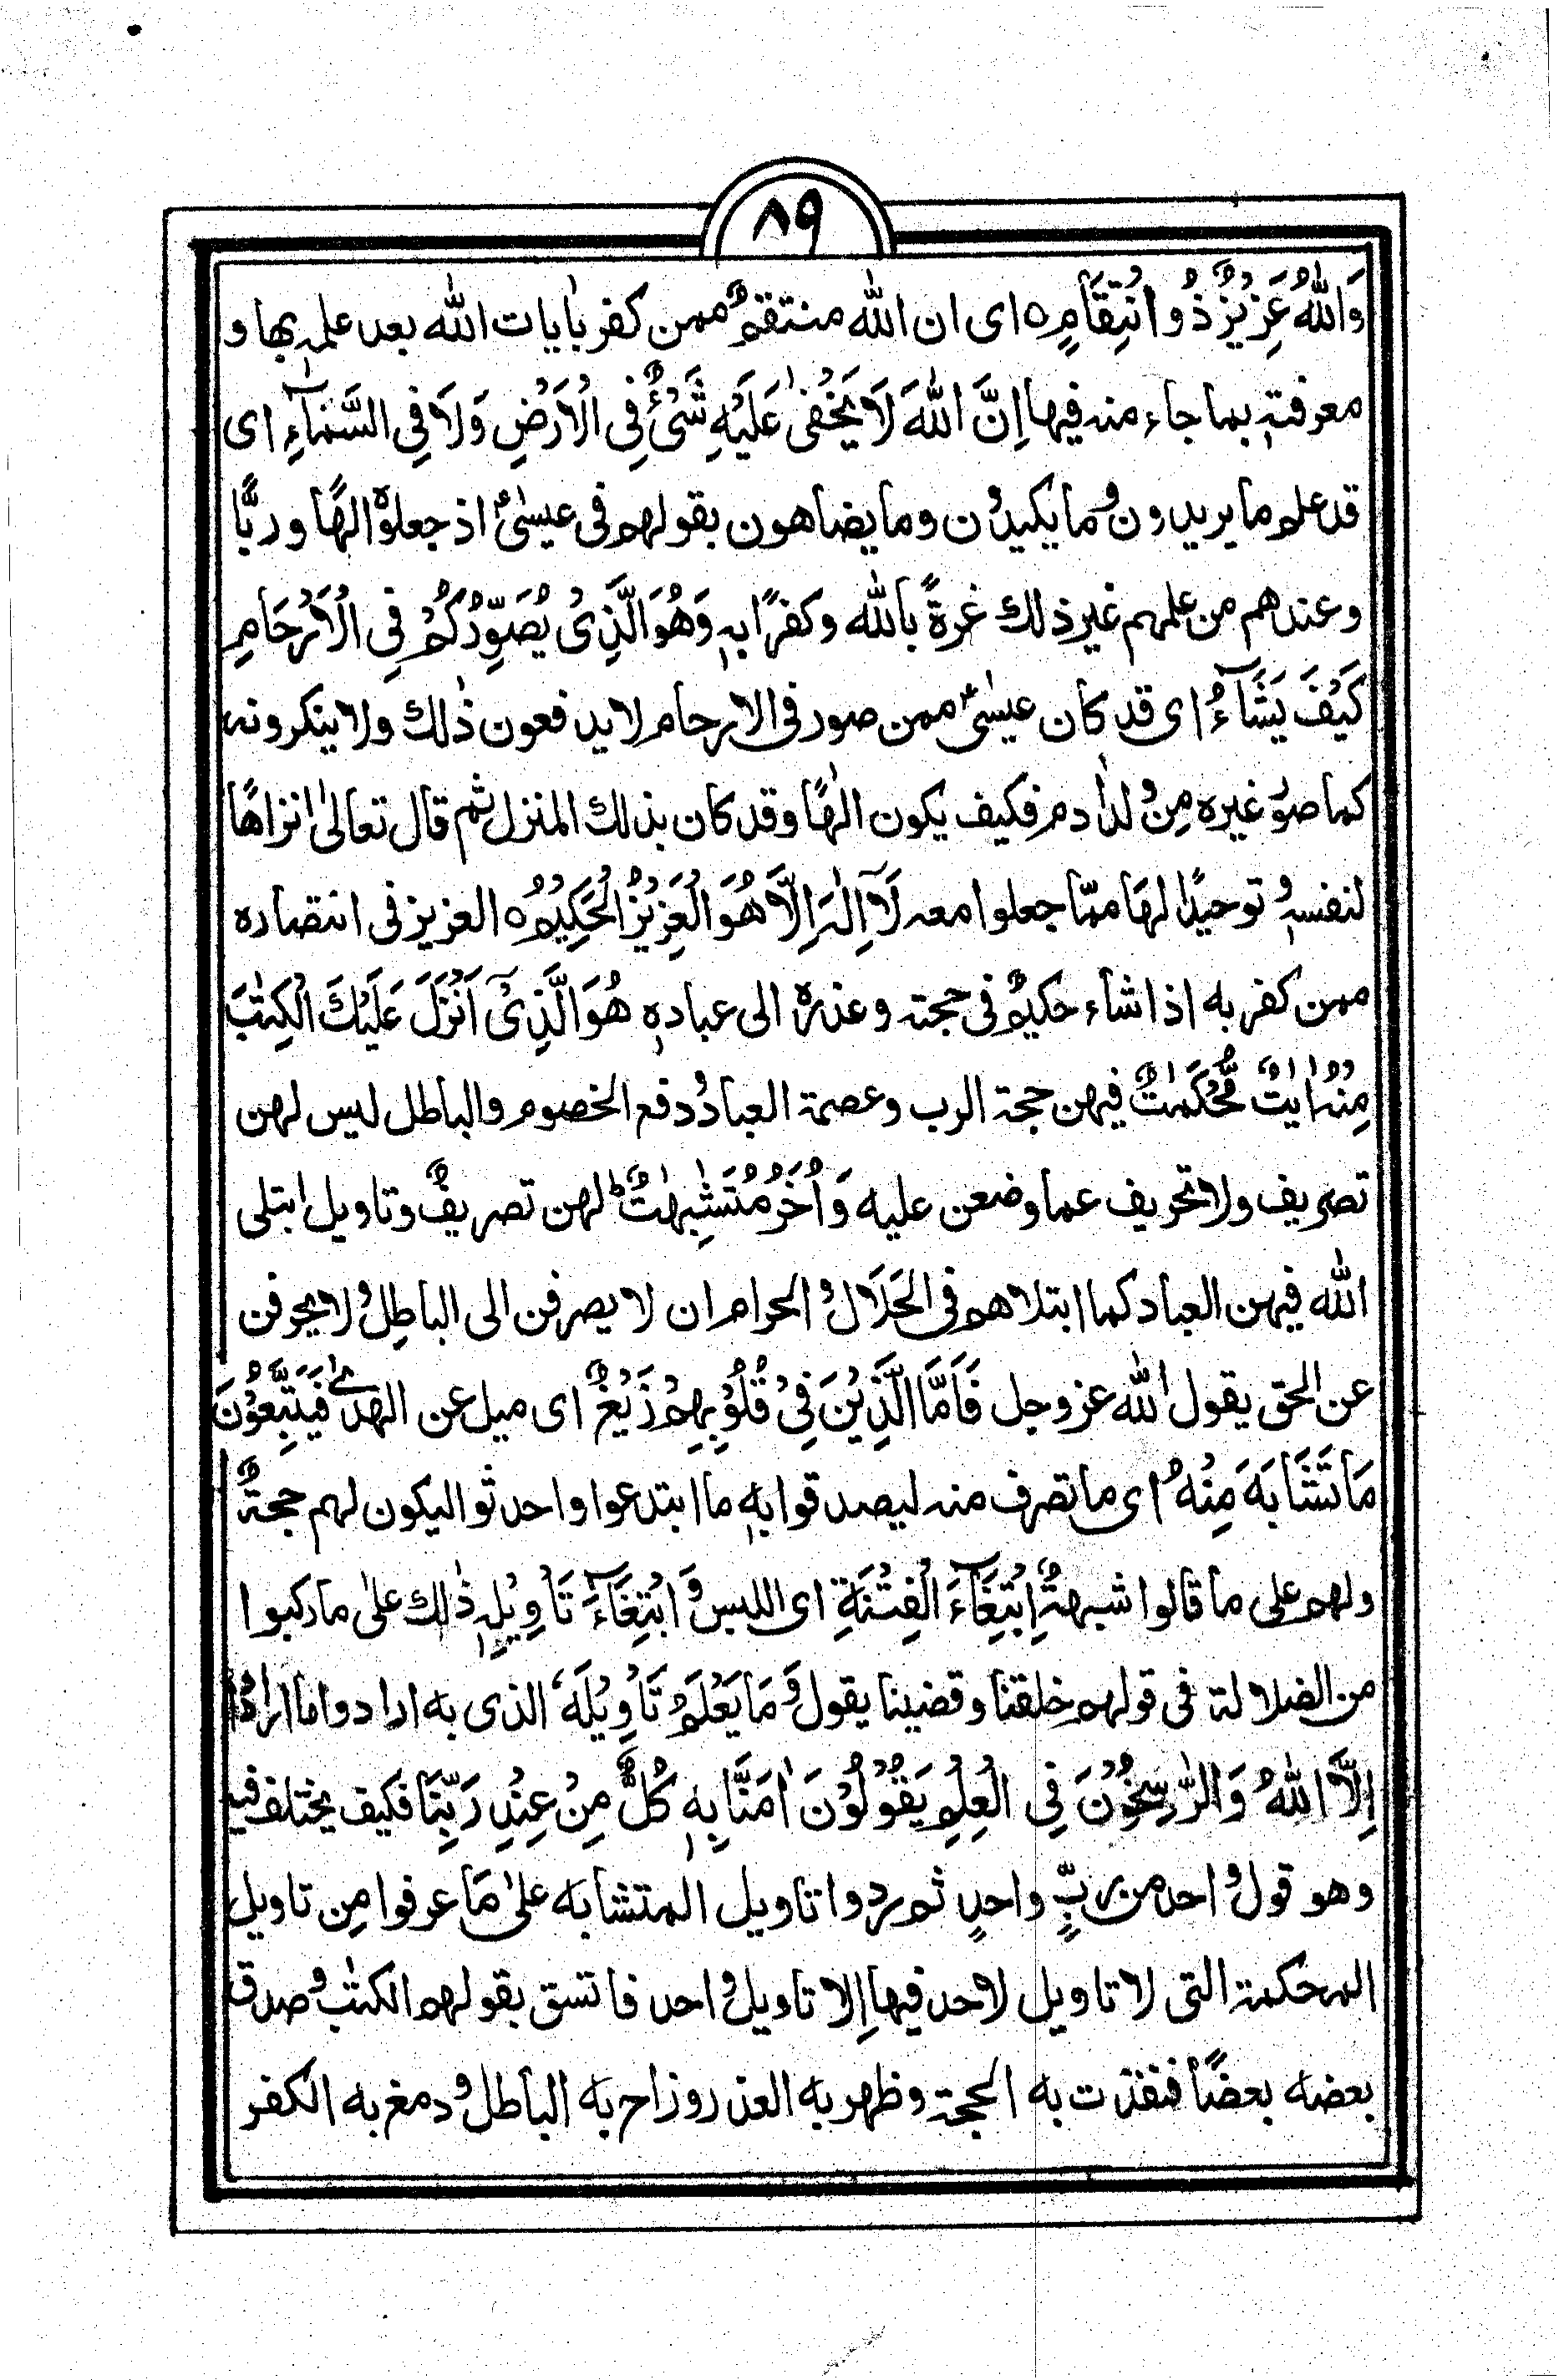 ۸۹
وَاللّٰهُ عَزِيْزٌ ذُو انْتِقَامٍ ○ ای ان اللّٰه منتقمٌ ممن كفر بایات اللّٰه بعد علمہٖ بها و
معرفتہٖ بما جاء منہ فیها اِنَّ اللّٰهَ لَا یَخْفٰی عَلَیْهِ شَیْءٌ فِی الْاَرْضِ وَلَا فِی السَّمَآءِ ای
قد علم ما یریدون و ما یکیدون وما یضاهون بقولهم فی عیسٰیؑ اذ جعلوہ الٰهًا و ربًّا
وعندهم من علمهم غیر ذلك غرةً باللّٰه وکفرًا بہٖ وَهُوَ الَّذِیْ یُصَوِّرُكُمْ فِی الْاَرْحَامِ
كَیْفَ یَشَآءُ ای قد كان عیسٰیؑ ممن صور فی الارحام لا یدفعون ذٰلك ولا ینکرونہ
كما صوّر غیرہ مِن ولد اٰدم فکیف یکون الٰهًا وقد كان بذلك المنزل ثم قال تعالٰی انزاهًا
لنفسہٖ و توحیدًا لهَا ممّا جعلوا معہ لَآ اِلٰہَ اِلَّا هُوَ الْعَزِیْزُ الْحَکِیْمُ ○ العزیز فی انتصارہ
ممن كفر به اذا شاء حکیمٌ فی حجتہ و عذرہ الی عبادہٖ هُوَ الَّذِیْۤ اَنْزَلَ عَلَیْكَ الْکِتٰبَ
مِنْہُ اٰیٰتٌ مُّحْكَمٰتٌ فیهن حجة الرب وعصمة العباد و دفع الخصوم والباطل لیس لهن
تصریف ولا تحریف عما وضعن علیه وَاُخَرُ مُتَشٰبِهٰتٌؕ لهن تصریفٌ وتاویل ابتلی
اللّٰه فیهن العباد كما ابتلاهم فی الحَلَال و الحرام ان لا یصرفن الی الباطِل و لا یحرفن
عن الحق یقول اللّٰه عز وجل فَاَمَّا الَّذِیْنَ فِیْ قُلُوْبِهِمْ زَیْغٌ ای میل عن الهدٰی فَیَتَّبِعُوْنَ
مَا تَشَابَهَ مِنْهُ ای ما تصرف منہ لیصدقوا بہٖ ما ابتدعوا واحدثوا لیکون لهم حجةٌ
ولهم علی ما قالوا شبهةٌ اِبْتِغَآءَ الْفِتْنَةِ ای اللبس و ابْتِغَآءَ تَاْوِیْلِہٖ ذٰلك علٰی ما ركبوا
من الضلالة فی قولهم خلقنا وقضینا یقول وَ مَا یَعْلَمُ تَاْوِیْلَهٗ الذی به ارادوا ما ارادوا
اِلَّا اللّٰهُ وَالرّٰسِخُوْنَ فِی الْعِلْمِ یَقُوْلُوْنَ اٰمَنَّا بِہٖ كُلٌّ مِنْ عِنْدِ رَبِّنَا فکیف یختلف فیہ
وهو قول و احد من ربٍّ واحدٍ ثم ردوا تاویل المتشابه علٰی مَا عرفوا مِن تاویل
المحكمة التی لا تاویل لاحد فیها اِلا تاویل و احد فاتسق بقولهم الکتٰب و صدق
بعضه بعضًا فنفذت به الحجة و ظهر به العذر وزاح به الباطل و دمغ به الکفر